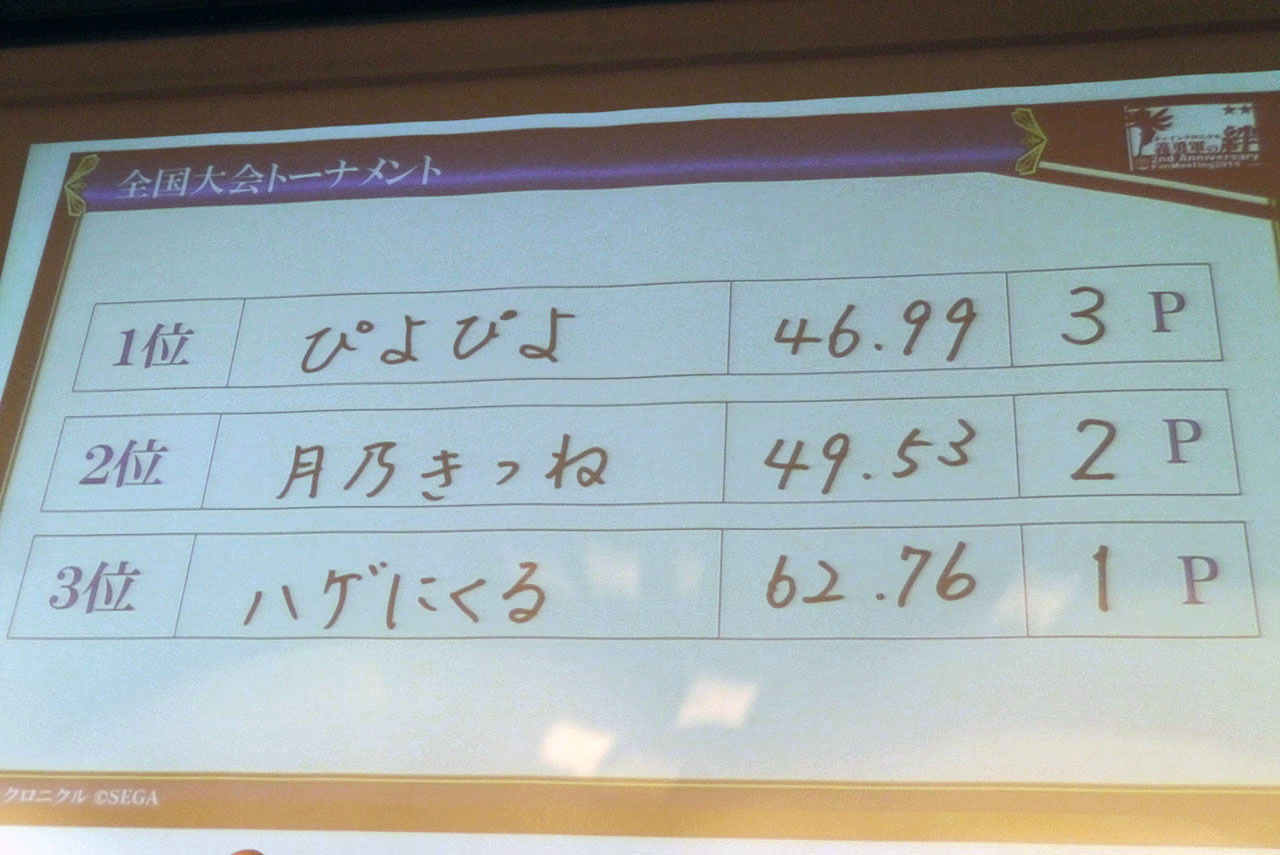 全国大会トーナメント
チェインクロニクル
義勇軍の絆
2nd Anniversary
FanMeeting2015
1位 ぴよぴよ 46.99 3 P
2位 月乃きつね 49.53 2 P
3位 ハゲにくる 62.76 1 P
クロニクル ©SEGA